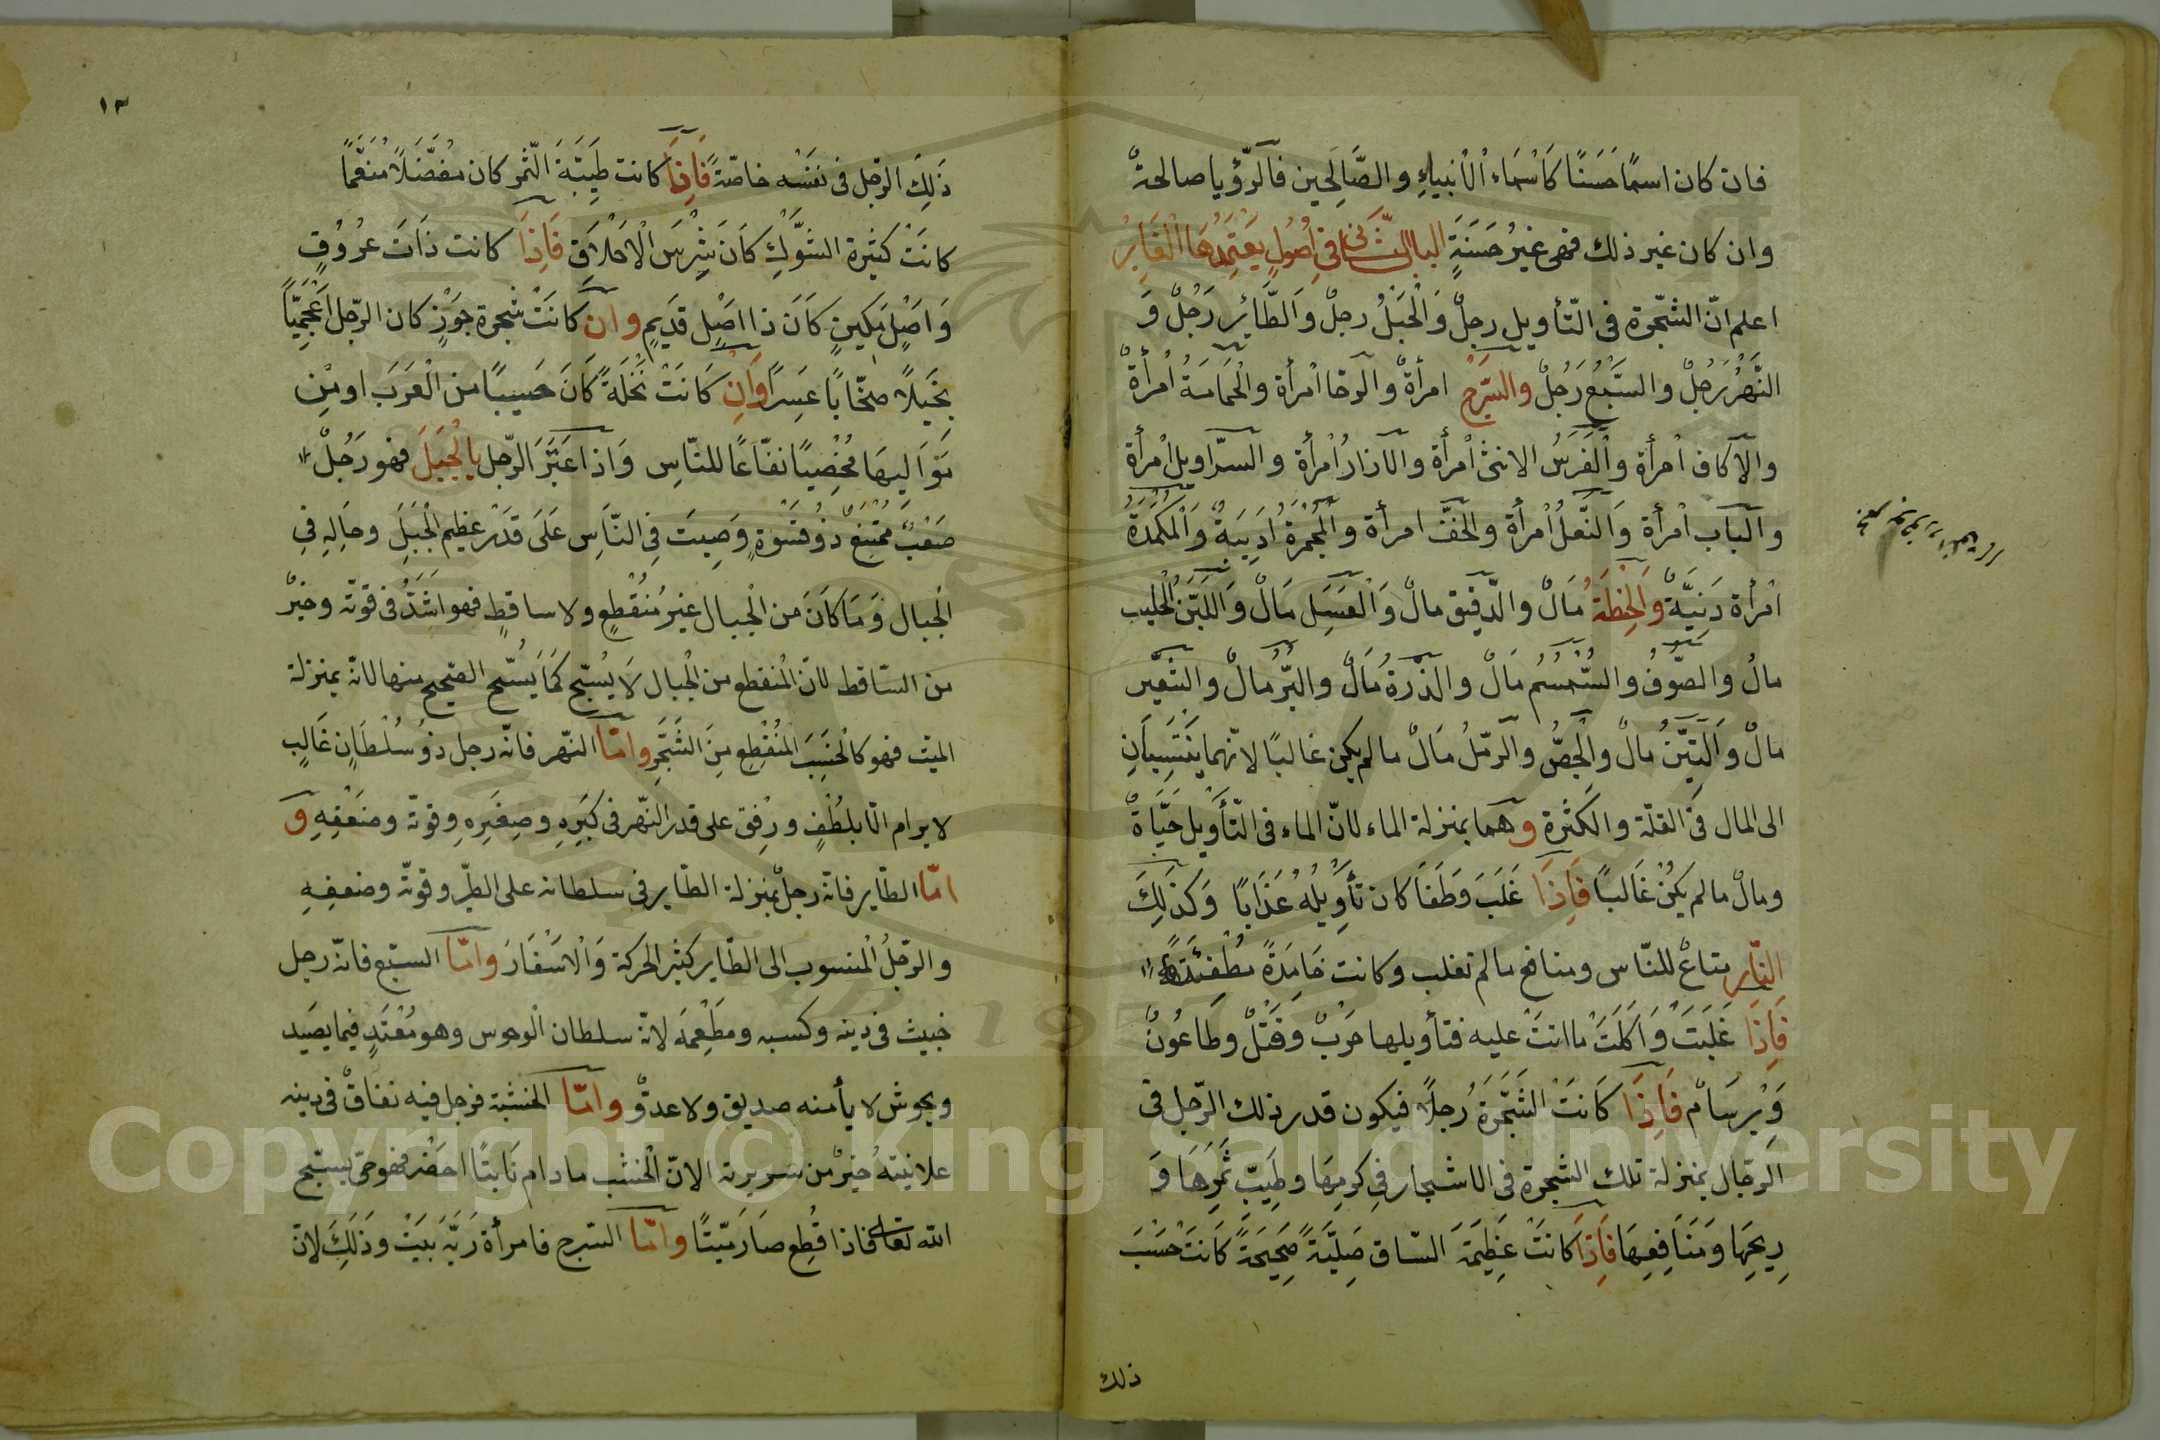 فان كان اسمًا حَسَنًا كَاسْمَاءِ الْأنبياءِ والصَّالِحين فالرّؤيا صالحةٌ
وان كان غير ذلك فهى غيرُ حَسَنَةٍ الباب الثّانى فى أصُولٍ يَعْتَمِدُهَا الْعَابِرُ
اعلم انّ الشجّرة فى التّأويل رجلٌ وَالْجَبَلُ رجلٌ وَالطَّائِرُ رَجُلٌ وَ
النَّهْرُ رَجُلٌ والسَّبُعُ رَجُلٌ والسَّرْجُ امرأةٌ والرحا امْرأة والْحَمَامَةُ امْرأةٌ
والآكاف امْرأة والْفَرَسُ الانثى امْرأة والازارُ امْرأة والسرّاويل امْرأة
والباب امْرأة وَالنَّعلُ امْرأة والخفّ امرأة والْمِجْمَرَةُ اَدِيبَةٌ وَالْمِكْمَدَةُ
امْرأة دَنِيَّةٌ وَالْحِنْطَةُ مَالٌ والدّقيق مالٌ وَالْعَسَل مَالٌ وَاللَّبَن الْحَليب
مالُ والصّوفُ والسُّمْسُمُ مَالٌ والذّرةُ مَالٌ والبُرّ مالٌ والشّعير
مالٌ وَالتِّبْنُ مالٌ والْجِصُّ والرمّلُ مَالٌ مالم يكن غالبًا لانّهما يَنْتَسِبَانِ
الى المال فى القلّة والكَثْرة وهما بمنزلة الماء لانّ الماء فى التّأوِيل حَيَاةٌ
ومالٌ مالم يكُنْ غَالبًا فَاِذَا غَلَبَ وَطَغَا كان تَأوِيلُهُ عَذَابًا وَكَذَلِكَ
النّار متاعٌ للنّاس ومنافع مالم تغلب وكانت خَامِدَةً مطْفِئَةً
فَاِذَا غَلَبَتْ وَاَكَلَتْ ما اتتْ عليه فتأويلها حَرْبٌ وقَتْلٌ وطَاعُونٌ
وَبِرسَامٌ فَاِذَا كَانَتْ الشَجَرَةُ رُجلاً فيكون قدر ذلك الرّجل فى
الرّجال بمنزلة تلك الشّجرة فى الاشجار فى كرمِهَا وطيبِ ثَمَرِهَا وَ
رِيحِهَا وَمَنَافِعِهَا فَاِذَا كَانَتْ عَظِيمَةَ السّاق صَلِيبَةً صَحِيحَةً كَانَتْ حَسَبَ
ذلك
١٣
ذَلِكَ الرّجل فى نَفْسه خاصّةً فَاِذَا كانت طَيِّبَةَ الثّمر كان مفضّلاً مُنعّمًا
كانَتْ كثيرة الشَّوْكِ كَانَ شَرِسَ الْاَخْلَاقِ فَاِذَا كانت ذَاتَ عُرُوقٍ
وَاَصْلٍ مَكِينٍ كَانَ ذا اصْلٍ قَدِيمٍ وان كَانَتْ شجرة جَوْزٍ كان الرّجل اَعْجَمِيًّا
بَخيلاً صخّابًا عَسِرًا وَاِنْ كَانَتْ نَخْلَةً كَانَ حسيبًا من الْعَرَبِ او مِن
مَوَالِيهَا مُخْصِبًا نفّاعًا للنّاسِ وَاذا عَبَّرَ الرّجل بِالْجَبَل فهو رَجُلٌ
صَعْبٌ مُمْتَنِعٌ ذُو قَسْوَةٍ وَصِيت فِى النّاسِ عَلَى قَدْرِ عظيم الْجَبَلِ وحَالِهِ فى
الْجبال وَمَا كَانَ من الْجبال غيرُ مُنْقَطِعٍ ولا ساقطٍ فهو اَشَدُّ فى قوّته وخيرٌ
من السّاقط لانّ الْمُنقطع من الجبال لَا يُسَبِّح كَمَا يُسَبّح الصّحيح منها لانّه بمنزلة
الميّت فهو كالْخَشَبِ الْمُنْقَطِع مِنَ الشَّجَرِ وامّا النّهر فانّه رجل ذوُ سُلْطَانٍ غَالبٍ
لا يرام الّا بلُطْفٍ ورِفْق على قدر النّهر فى كِبَرِهِ وصِغَرِهِ وقوّته وضَعْفِهِ وَ
امّا الطّاير فانّه رجلٌ بمنزلة الطّاير فى سلطانه على الطيّر وقوّته وضعفِهِ
والرّجُلُ الْمنسوب الى الطّاير كثير الحركة وَالْاسْفَارِ وامّا السّبع فانّه رجل
خبيث فى دينه وكسبه ومطَعْمِه لانّه سلطان الْوحوس وهو مُعْتَدٍ فيما يصَيد
ويحوش لا يأمنه صديق ولا عدوٌّ وامّا الخشبة فرجل فيه نفاقٌ فى دينه
علانيته خيرٌ من سريرته الانّ الْخشب مادام نابتًا اخضر فهو حىّ يسبّح
الله تعالى فاذا قُطِع صَارَ ميّتًا وامّا السّرج فامرأة رَبّة بَيْتٍ وَذَلِكَ لانّ